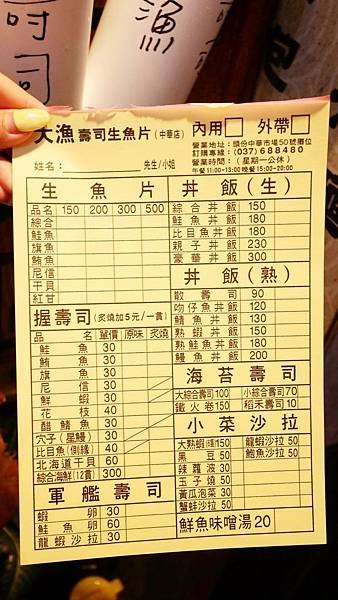 司
漁
大漁 壽司生魚片 (中華店) 內用□ 外帶□
營業地址：頭份中華市場50號攤位
訂購專線：(037)688480
營業時間：(星期一公休)
午餐11:00-13:00 晚餐15:00-20:00
姓名： 先生/小姐
生魚片
品名 150 200 300 500
綜合
鮭魚
旗魚
鮪魚
尼信
干貝
紅甘
握壽司 (炙燒加5元/一貫)
品名 單價 原味 炙燒
鮭魚 30
鮪魚 30
旗魚 30
尼信 30
鮮蝦 30
花枝 40
醋鯖魚 30
穴子(星鰻) 30
比目魚(側緣) 40
北海道干貝 60
綜合海鮮(12貫) 300
軍艦壽司
蝦卵 30
鮭魚卵 60
龍蝦沙拉 30
丼飯(生)
綜合丼飯 150
鮭魚丼飯 180
比目魚丼飯 180
親子丼飯 230
豪華丼飯 300
丼飯(熟)
散壽司 90
吻仔魚丼飯 120
鯖魚丼飯 130
熟蝦丼飯 150
熟鮭魚丼飯 180
鰻魚丼飯 200
海苔壽司
大綜合壽司 100 小綜合壽司 70
鐵火卷 150 稻禾壽司 10
小菜沙拉
大熟蝦 150 龍蝦沙拉 50
黑豆 50 鮑魚沙拉 50
辣蘿波 30
玉子燒 50
黃瓜泡菜 30
蟹蚌沙拉 50
鮮魚味噌湯 20